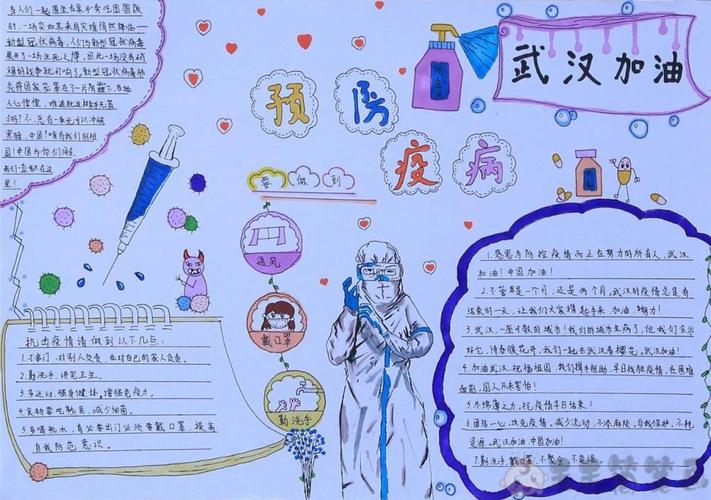 当人们一起围坐在桌子旁吃团圆饭
时,一场突如其来的灾难悄然降临——
新型冠状病毒,人们与新型冠状病毒
展开了一场生死之搏,因此一场没有硝
烟的战争就打响了,新型冠状病毒肺
让我们一直都在这
里!
武汉加油
预防
疫病
要做到
通风
戴口罩
勤洗手
抗击疫情请做到以下几点:
1.不串门,对别人负责,也对自己的家人负责。
2.勤洗手,讲究卫生。
3.多运动,强身健体,增强免疫力。
4.食物要吃熟食,减少细菌。
5.多喝热水,有必要出门必须要戴口罩,提高
自我防范意识。
1.感恩为防控疫情而正在努力的所有人,武汉
加油!中国加油!
2.不管是一个月,还是两个月,武汉的疫情总是有
结束的一天,让我们大家撑起手来,加油,努力!
3.武汉,一座可敬的城市!我们的城市生病了,但我们会治
好它,待春暖花开,我们一起去武汉看樱花。武汉加油!
4.加油武汉,祝福祖国,我们携手相助,早日战胜疫情,在困难
面前,国人从来害怕!
5.尽绵薄之力,抗疫情早日结束!
6.团结一心,攻克疫情,减少流动,不添麻烦,自我保护,不耗
资源。武汉加油,中国加油!
7.勤洗手,戴口罩,不聚会,不